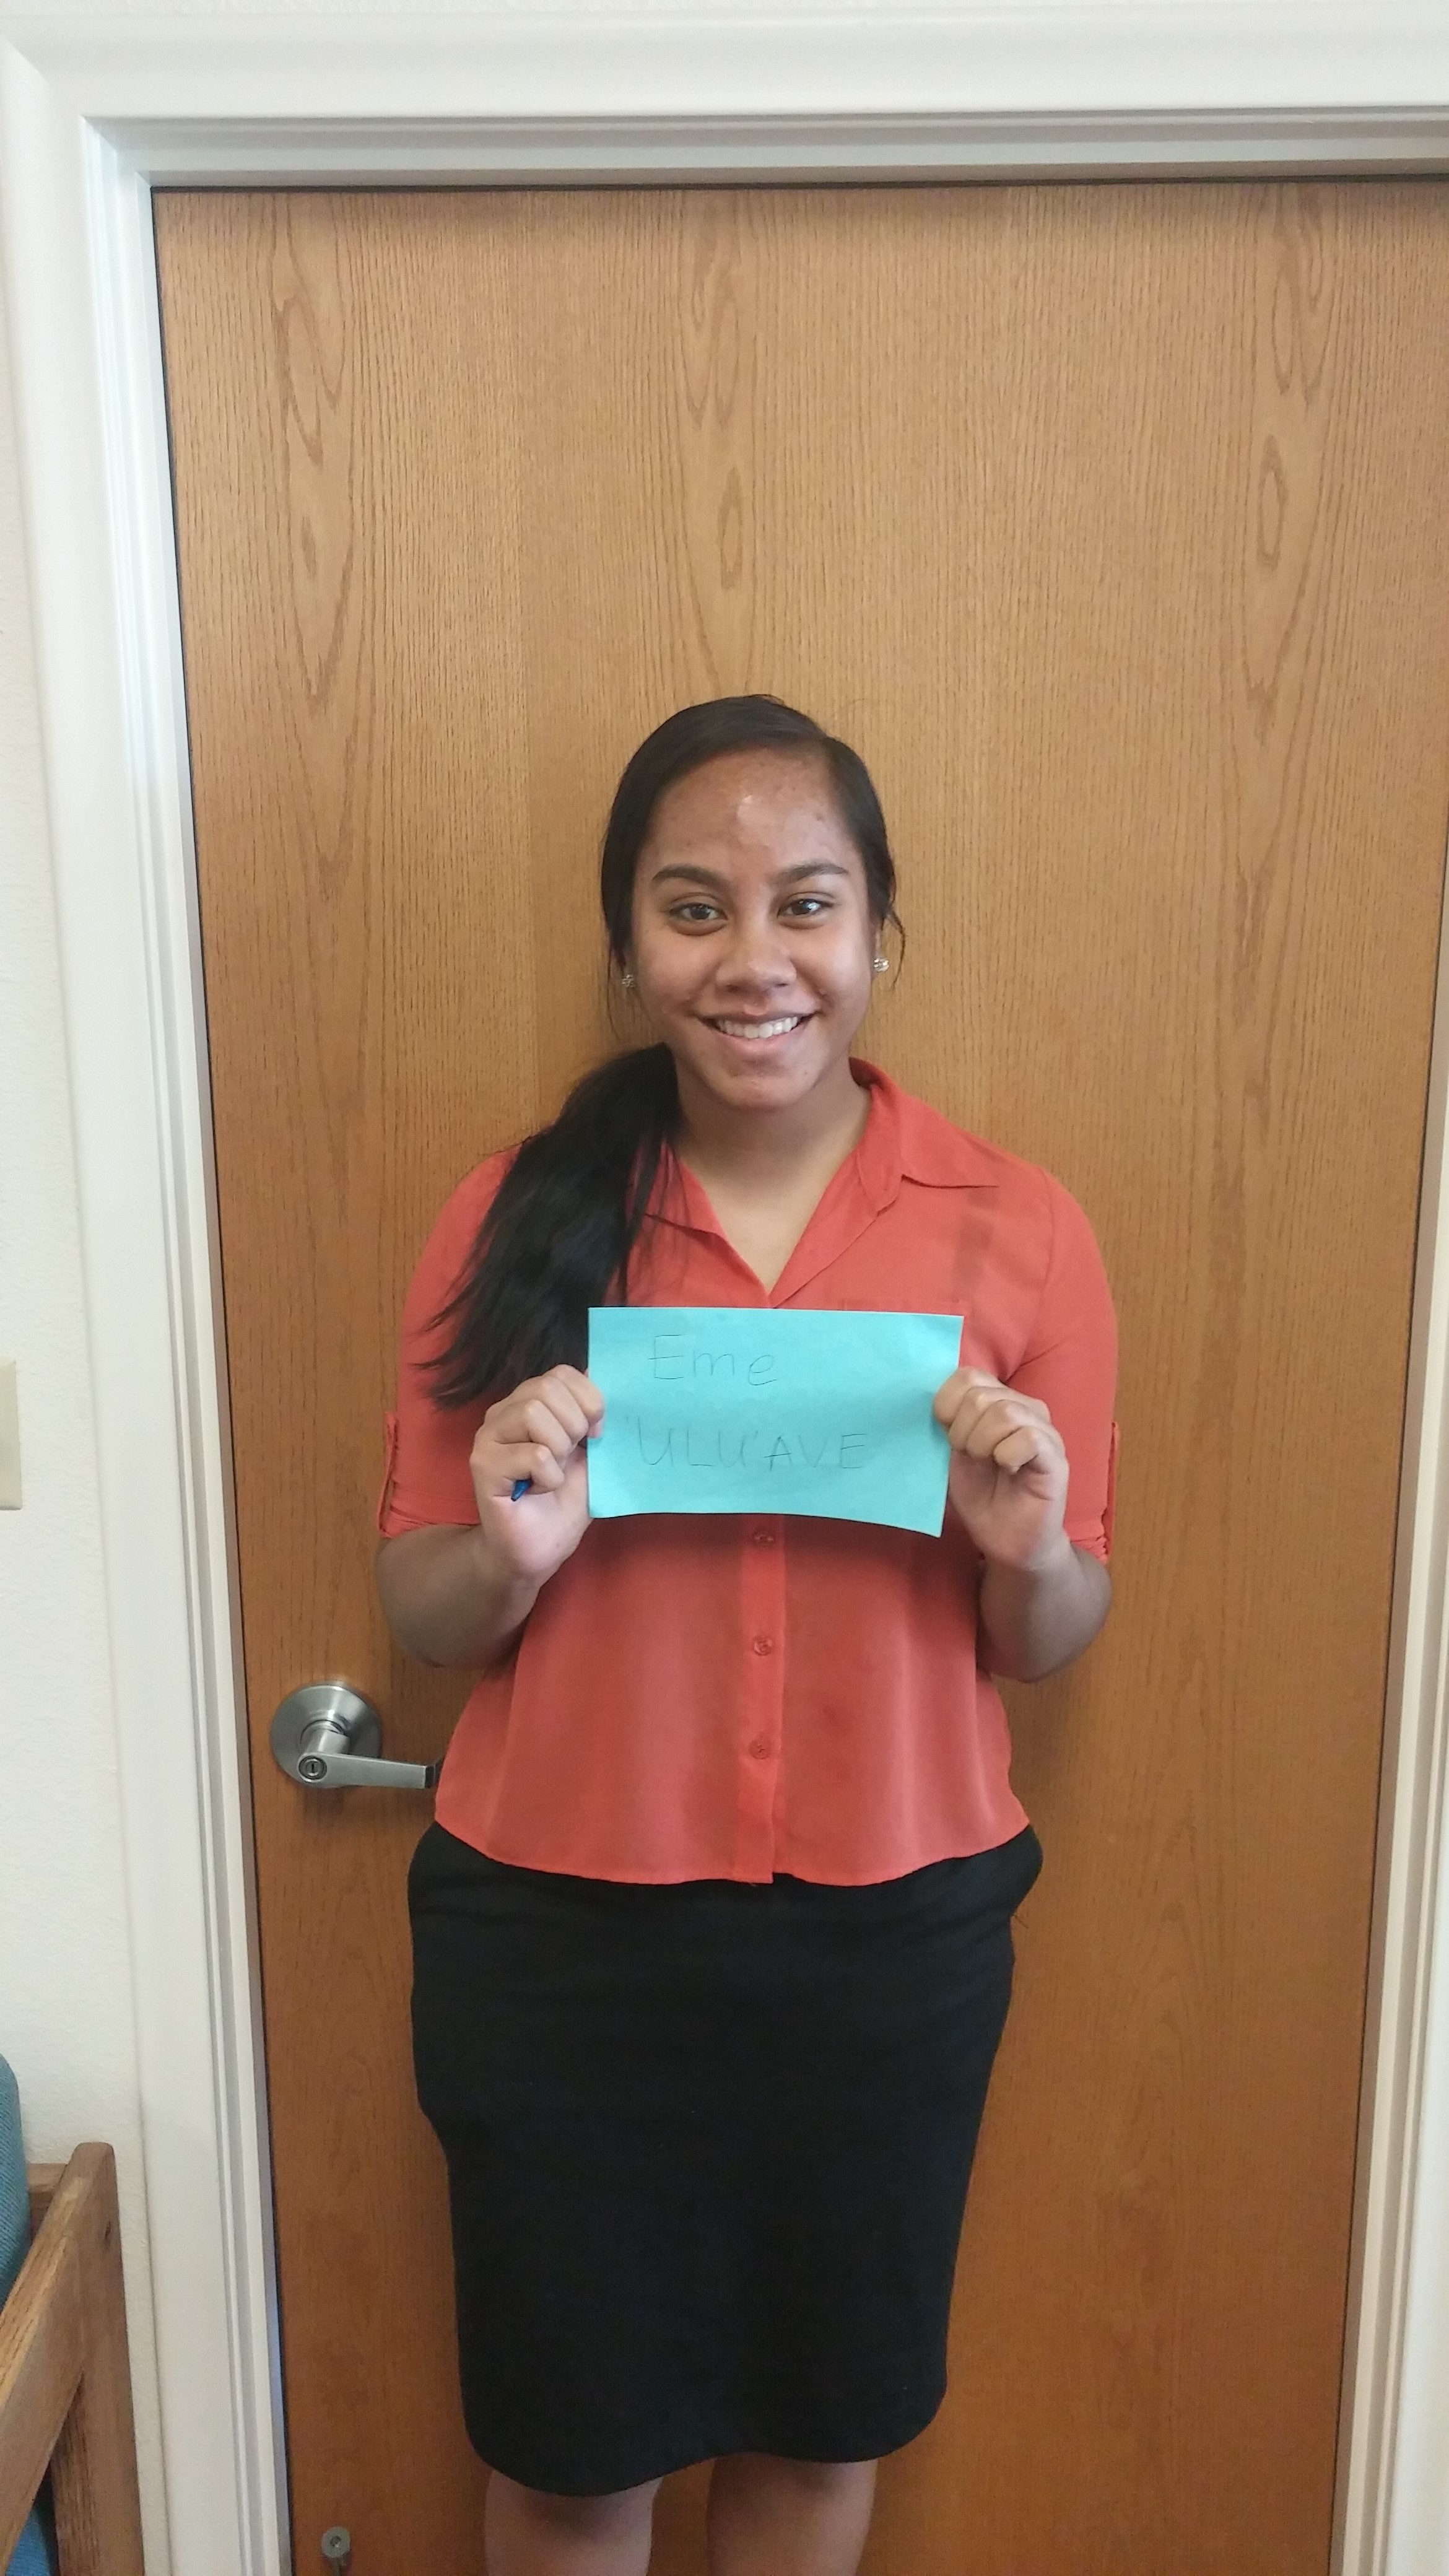 Eme
'ULU'AVE